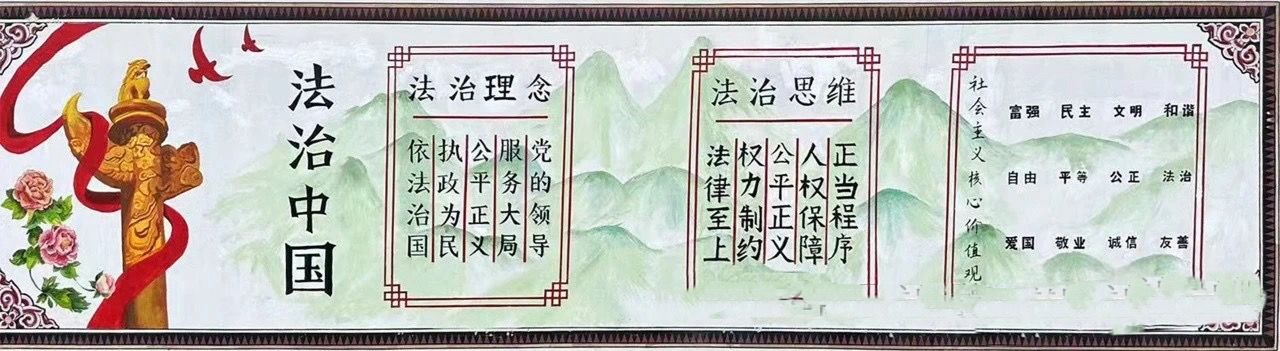 法治中国
法治理念
依法治国
执政为民
公平正义
服务大局
党的领导
法治思维
法律至上
权力制约
公平正义
人权保障
正当程序
社会主义核心价值观
富强 民主 文明 和谐
自由 平等 公正 法治
爱国 敬业 诚信 友善